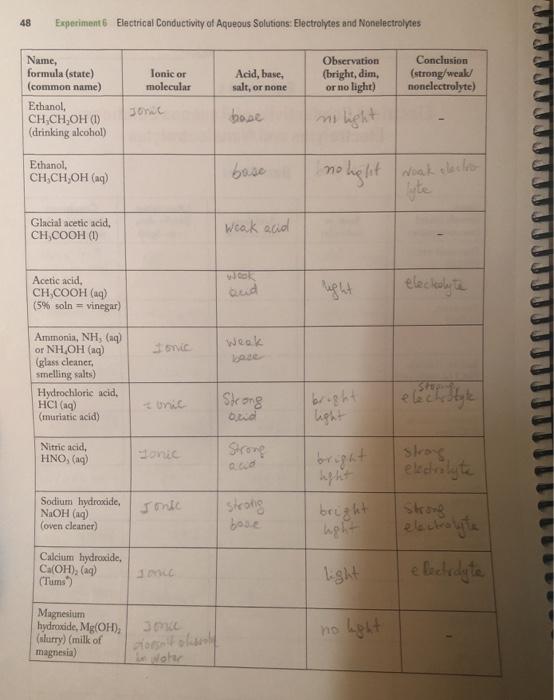 48 Experiment 6 Electrical Conductivity of Aqueous Solutions: Electrolytes and Nonelectrolytes
Name,
formula (state)
(common name)
Ionic or
molecular
Acid, base,
salt, or none
Observation
(bright, dim,
or no light)
Conclusion
(strong/weak/
nonelectrolyte)
Ethanol,
CH₃CH₂OH (l)
(drinking alcohol)
Ionic
base
no light
-
Ethanol,
CH₃CH₂OH (aq)
base
no light
Weak electro
lyte
Glacial acetic acid,
CH₃COOH (l)
Weak acid
-
Acetic acid,
CH₃COOH (aq)
(5% soln = vinegar)
weak
acid
light
electrolyte
Ammonia, NH₃ (aq)
or NH₄OH (aq)
(glass cleaner,
smelling salts)
Ionic
Weak
base
Hydrochloric acid,
HCl (aq)
(muriatic acid)
Ionic
Strong
acid
bright
light
Strong
Nitric acid,
HNO₃ (aq)
Ionic
Strong
acid
bright
light
strong
electrolyte
Sodium hydroxide,
NaOH (aq)
(oven cleaner)
Ionic
strong
base
bright
light
Strong
electrolyte
Calcium hydroxide,
Ca(OH)₂ (aq)
(Tums®)
Ionic
light
electrolyte
Magnesium
hydroxide, Mg(OH)₂
(slurry) (milk of
magnesia)
Ionic
doesn't dissolve
in water
no light
-